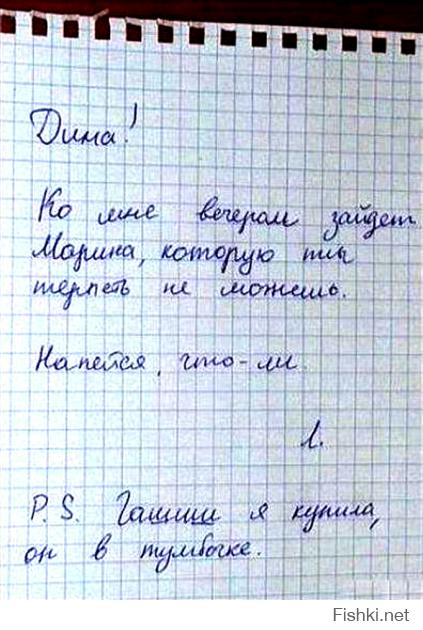 Дима!
Ко мне вечером зайдет
Марина, которую ты
терпеть не можешь.
Напейся, что-ли
Л.
P.S. Гашиш я купила,
он в тумбочке.
Fishki.net